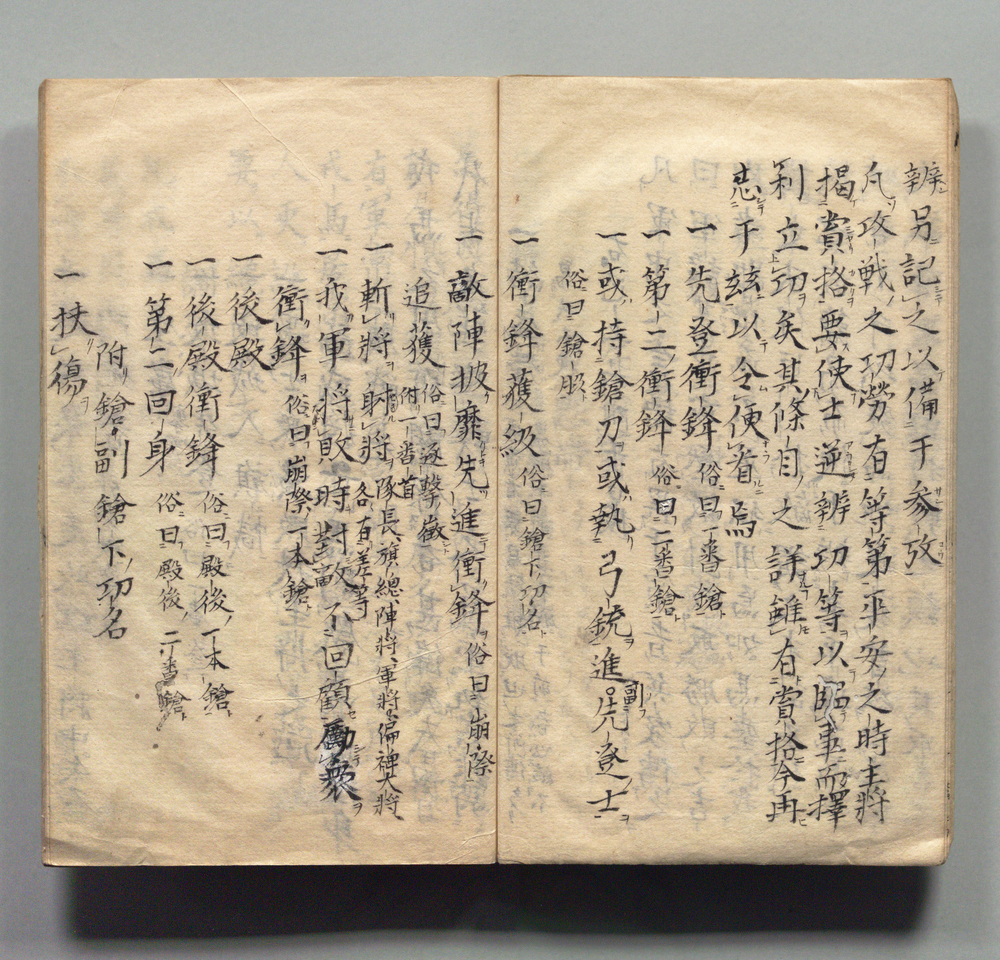 辨另記之以備于參攷
凡攻戰之功勞有等第平安之時主將
揭賞格要使士逆辨功等以臨事而擇
利立功矣其條目之詳雖有賞格今再
悉于茲以令便省焉
一先登衝鋒 俗曰一番鎗
一第二衝鋒 俗曰二番鎗
一或持鎗刀或執弓銃進副先登士
俗曰鎗脇
一衝鋒獲級 俗曰鎗下功名
一敵陣披靡先進衝鋒 俗曰崩際
追獲 俗曰逐擊 附一番首
一斬將躬將 隊長旗總陣將軍將偏裨大將各有差等
一我軍將敗時對敵不回顧勵衆
衝鋒 俗曰崩際一本鎗
一後殿
一後殿衝鋒 俗曰殿後一本鎗
一第二回身 俗曰殿後二番鎗
附鎗副鎗下功名
一扶傷